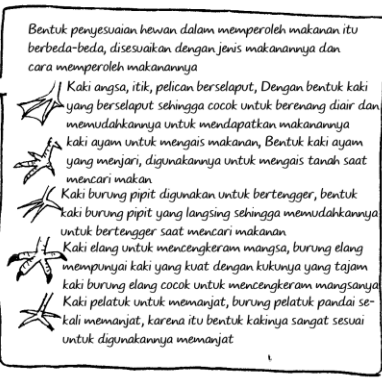 Bentuk penyesuaian hewan dalam memperoleh makanan itu
berbeda-beda, disesuaikan dengan jenis makanannya dan
cara memperoleh makanannya
Kaki angsa, itik, pelican berselaput, Dengan bentuk kaki
yang berselaput sehingga cocok untuk berenang diair dan
memudahkannya untuk mendapatkan makanannya
kaki ayam untuk mengais makanan, Bentuk kaki ayam
yang menjari, digunakannya untuk mengais tanah saat
mencari makan
Kaki burung pipit digunakan untuk bertengger, bentuk
kaki burung pipit yang langsing sehingga memudahkannya
untuk bertengger saat mencari makanan
Kaki elang untuk mencengkeram mangsa, burung elang
mempunyai kaki yang kuat dengan kukunya yang tajam
kaki burung elang cocok untuk mencengkeram mangsanya
Kaki pelatuk untuk memanjat, burung pelatuk pandai se-
kali memanjat, karena itu bentuk kakinya sangat sesuai
untuk digunakannya memanjat